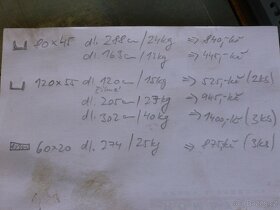 80×45 dl. 288cm/24kg => 840,-kč
dl. 163cm/11kg => 445,-kč
120×55 dl. 120cm/15kg => 525,-kč (2ks)
dl. 205cm/27kg => 945,-kč
dl. 302cm/40kg => 1400,-kč (3ks)
60×20 dl. 274/25kg => 875,-kč (3ks)